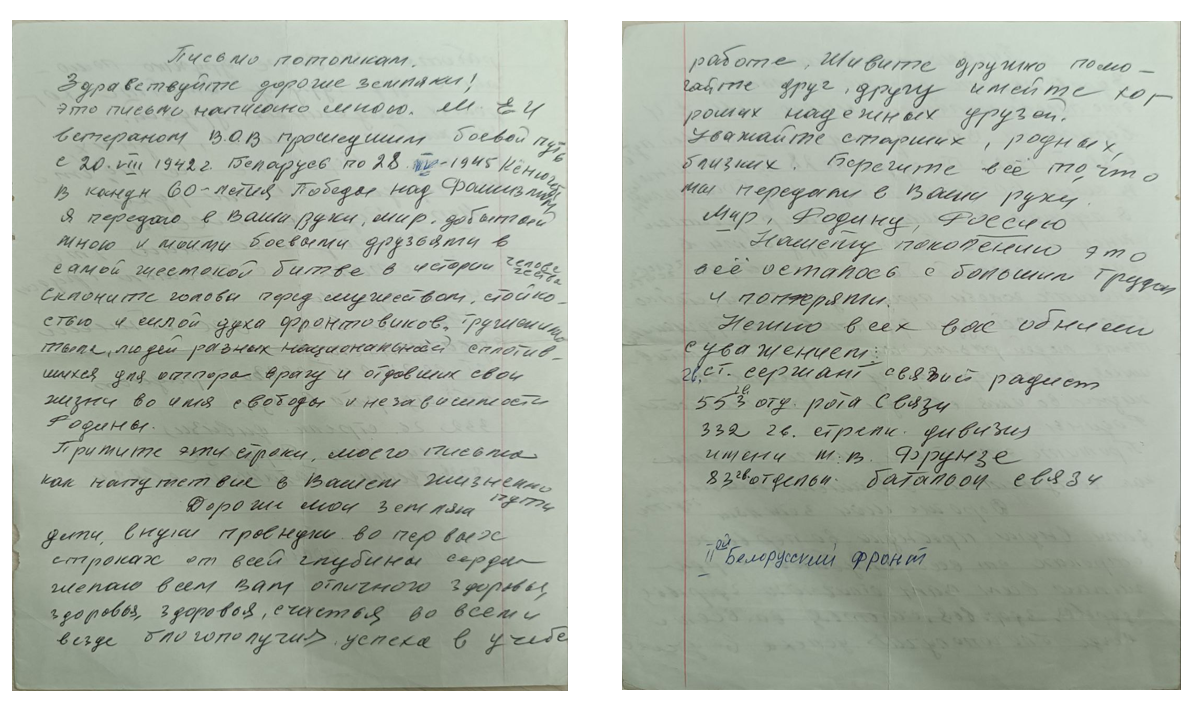 Письмо потомкам.
Здравствуйте дорогие земляки!
это письмо написано мною. М Е И
ветераном В.О.В прошедшим боевой путь
с 20. VIII 1942г. Беларусь по 28. -1945
В канун 60-летия Победы над Фашизмом
Я передаю в Ваши руки, мир, добытый
мною и моими боевыми друзьями в
самой жестокой битве в истории человечества
склоните головы перед мужеством, стойко-
стью и силой духа фронтовиков, тружеников
тыла, людей разных национальной сплотив-
шихся для отпора врагу и отдавших свои
жизни во имя свободы и независимости
Родины.
Примите эти строки, моего письма
как напутствие в Вашем жизненно
пути
Дорогие мои земляки
дети, внуки правнуки во первых
строках от всей глубины сердца
желаю всем Вам отличного здоровья,
здоровья, здоровья, счастья, во всем и
везде благополучия, успеха в учебе
работе, Живите дружно помо-
гайте друг, другу имейте хо-
роших надежных друзей.
Уважайте старших, родных,
близких. Берегите всё то, что
мы передали в Ваши руки.
Мир, Родину, Россию
Нашему поколению это
всё осталось с большим трудом
и потерями.
Нежно всех вас обнимаю
с уважением:
гв. ст. сержант связий радист
553 отд. рота Связи
332 гв. стрелк. дивизия
имени М.В. Фрунзе
83 гв отдельн. баталион связи
II ой Белорусский фронт